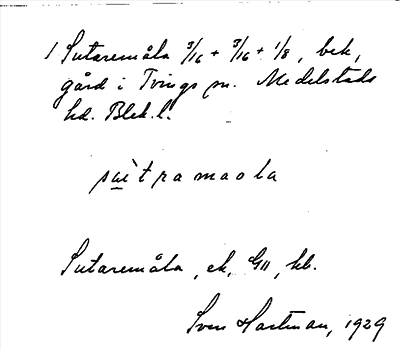 1 Sutaremåla 3/16 + 3/16 + 1/8, bek,
gård i Tvings sn. Medelstads
hd. Blek. l.
Sutaremåla, ek, GH, kb.
Sven Hartman, 1929